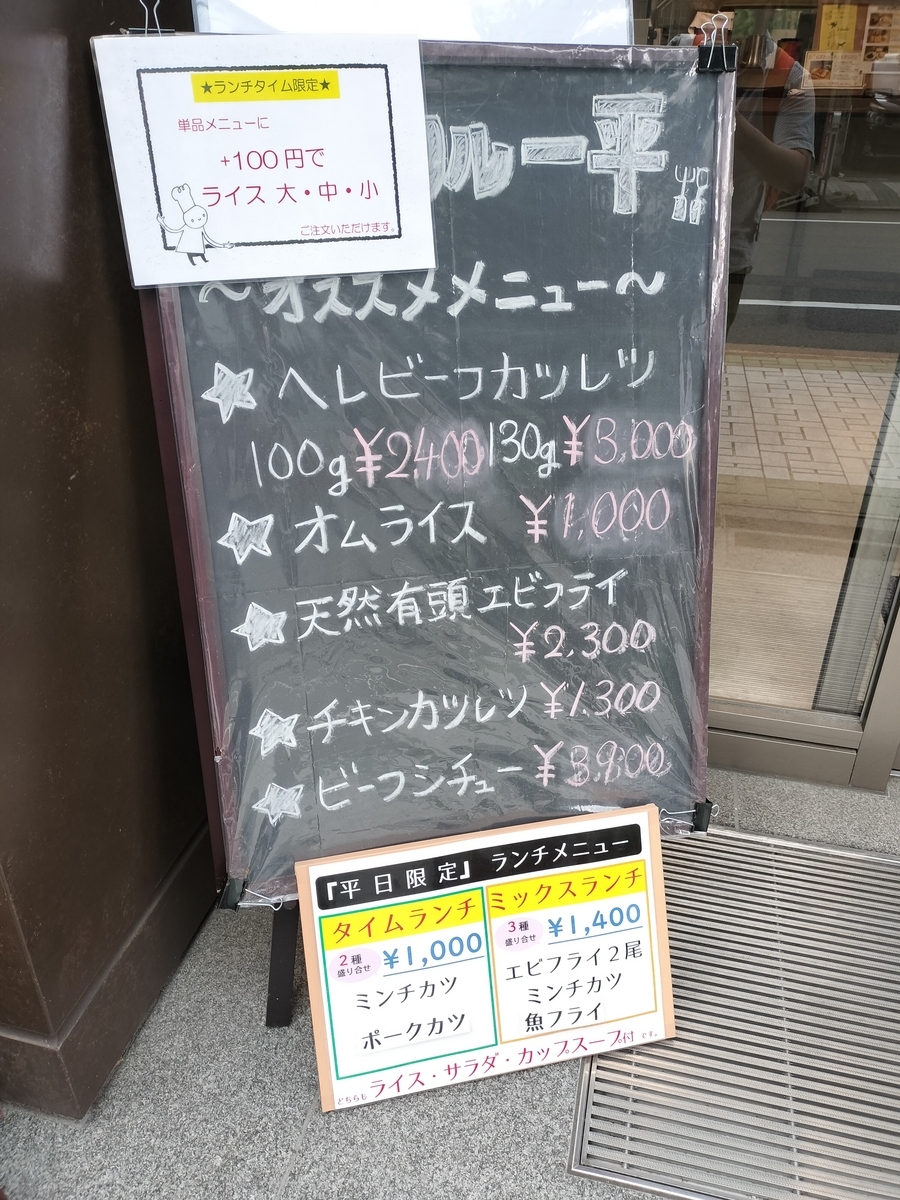 ★ランチタイム限定★
単品メニューに
+100円で
ライス 大・中・小
ご注文いただけます。
ルー平
～オススメメニュー～
☆ ヘレビーフカツレツ
100g ¥2,400 130g ¥3,000
☆ オムライス ¥1,000
☆ 天然有頭エビフライ
¥2,300
☆ チキンカツレツ ¥1,300
☆ ビーフシチュー ¥3,900
『平日限定』 ランチメニュー
タイムランチ
2種
盛り合せ
¥1,000
ミンチカツ
ポークカツ
ミックスランチ
3種
盛り合せ
¥1,400
エビフライ2尾
ミンチカツ
魚フライ
どちらも ライス・サラダ・カップスープ付 です。